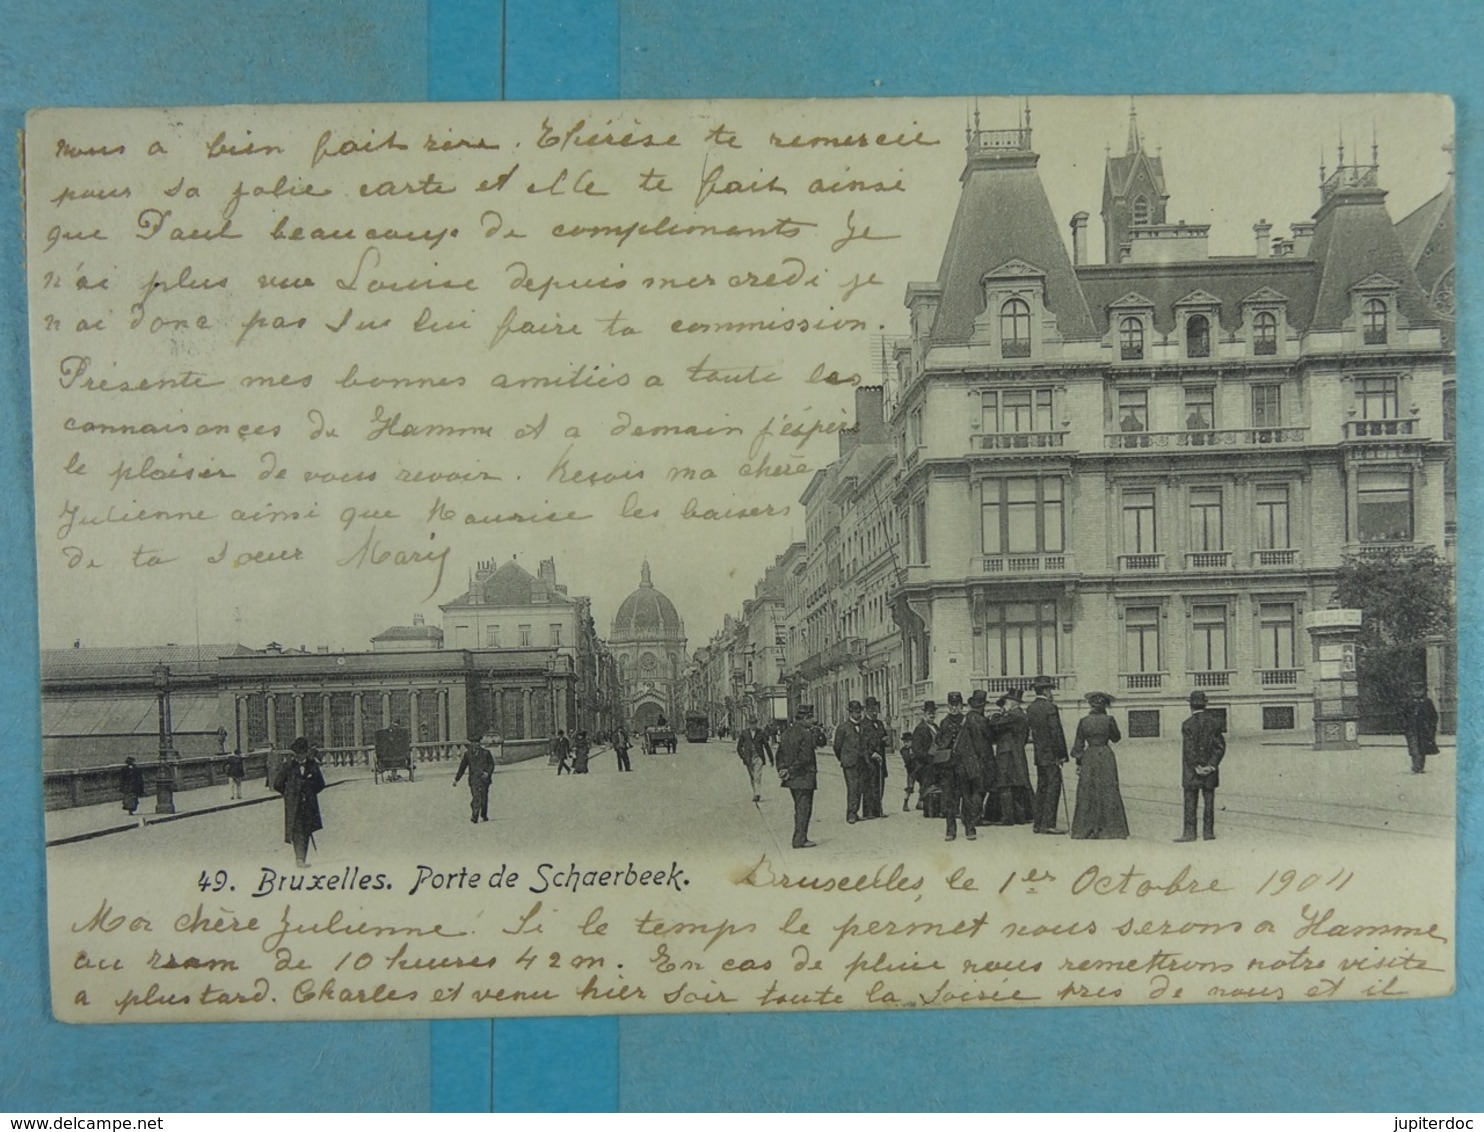 nous a bien fait rire. Thérèse te remercie
pour sa jolie carte et elle te fait ainsi
que Paul beaucoup de complimants. Je
n'ai plus vue Louise depuis mercredi je
n'ai donc pas su lui faire ta commission.
Présente mes bonnes amitiés a toute les
connaisançes de Hamme et a demain j'éspère
le plaisir de vous revoir. Resois ma chère
Julienne ainsi que Maurice les baisers
de ta soeur Mary
49. Bruxelles. Porte de Schaerbeek.
Bruxelles, le 1er Octobre 1904
Ma chère Julienne. Si le temps le permet nous serons a Hamme
au tram de 10 heures 42 m. En cas de pluie nous remettrons notre visite
a plus tard. Charles et venu hier soir toute la soirée près de nous et il
jupiterdoc